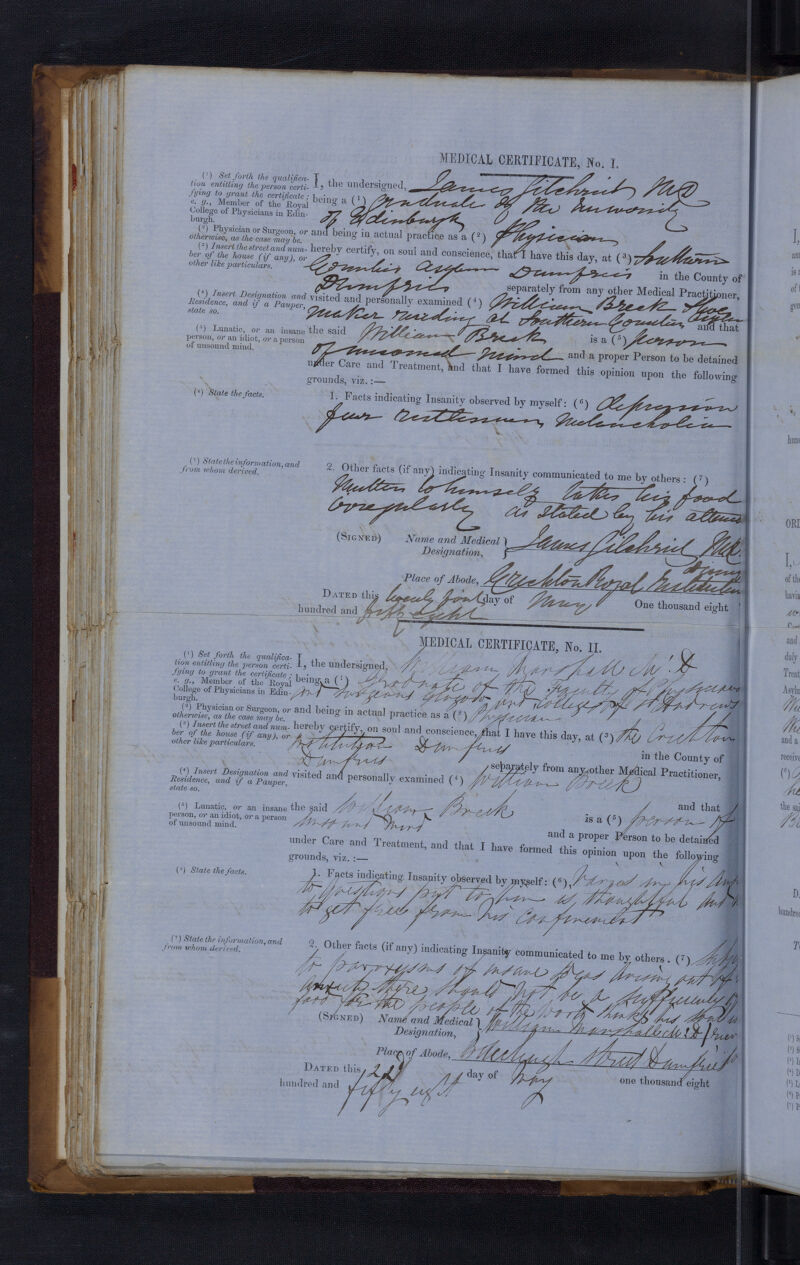 MEDICAL CERTIFICATE, No. I.
(¹) Set forth the qualifica-
tion entitling the person certi-
fying to grant the certificate;
e. g., Member of the Royal
College of Physicians in Edin-
burgh.
I, the undersigned, James Gilchrist MD
being a (¹) Graduate of the University
of Edinburgh
(²) Physician or Surgeon, or
otherwise, as the case may be.
and being in actual practice as a (²) Physician
(³) Insert the street and num-
ber of the house (if any), or
other like particulars.
hereby certify, on soul and conscience, that I have this day, at (³) Southern
Counties Asylum Dumfries in the County of
Dumfries separately from any other Medical Practitioner,
(⁴) Insert Designation and
Residence, and if a Pauper,
state so.
visited and personally examined (⁴) William Breck Shoe
maker residing at Southern Counties Asylum and that
(⁵) Lunatic, or an insane
person, or an idiot, or a person
of unsound mind.
the said William Breck is a (⁵) person
of unsound mind and a proper Person to be detained
under Care and Treatment, and that I have formed this opinion upon the following
grounds, viz.:—
(⁶) State the facts.
1. Facts indicating Insanity observed by myself: (⁶) depression
fear restlessness Melancholia
(⁷) State the information, and
from whom derived.
2. Other facts (if any) indicating Insanity communicated to me by others: (⁷)
Mutters to himself takes his food
irregularly as stated by his
(SIGNED) Name and Medical
Designation,
James Gilchrist MD
Place of Abode, Crichton Royal Institution
Dumfries
DATED this twenty first day of May One thousand eight
hundred and fifty eight
MEDICAL CERTIFICATE, No. II.
(¹) Set forth the qualifica-
tion entitling the person certi-
fying to grant the certificate;
e. g., Member of the Royal
College of Physicians in Edin-
burgh.
I, the undersigned, William Marshall M.D
being a (¹) Graduate of the Faculty of Physicians
and Surgeons Glasgow and College of St Andrews
(²) Physician or Surgeon, or
otherwise, as the case may be.
and being in actual practice as a (²) Physician
(³) Insert the street and num-
ber of the house (if any), or
other like particulars.
hereby certify, on soul and conscience, that I have this day, at (³) the Crichton
Institution Dumfries in the County of
Dumfries separately from any other Medical Practitioner,
(⁴) Insert Designation and
Residence, and if a Pauper,
state so.
visited and personally examined (⁴) William Breck
(⁵) Lunatic, or an insane
person, or an idiot, or a person
of unsound mind.
the said William Breck and that
is a (⁵) person of
unsound mind and a proper Person to be detained
under Care and Treatment, and that I have formed this opinion upon the following
grounds, viz.:—
(⁶) State the facts.
1. Facts indicating Insanity observed by myself: (⁶) Varies in his
to questions put to him is thoughtful and
to get free from his confinement
(⁷) State the information, and
from whom derived.
2. Other facts (if any) indicating Insanity communicated to me by others. (⁷)
to paroxysms of insane fears arising out of
there should not be a sufficiency of
food for the people of the world thinks his soul is
(SIGNED) Name and Medical
Designation,
William Marshall M.D
Place of Abode, Buccleugh Street Dumfries
DATED this 22d day of May one thousand eight
hundred and fifty eight